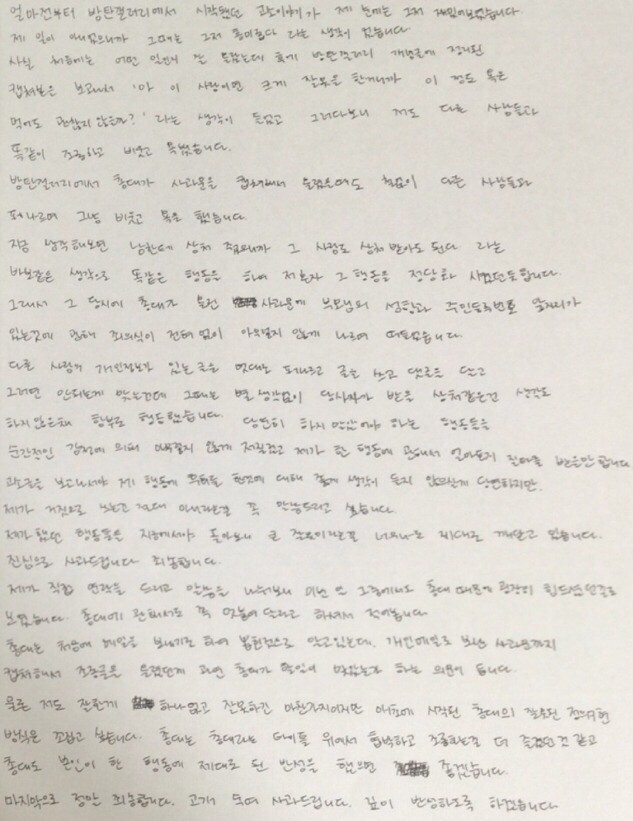 얼마전부터 방탄갤러리에서 시작했던 고소이야기가 제 눈에는 그저 재밌어보였습니다.
제 일이 아니었으니까 그때는 그저 흥미롭다 라는 생각이 있습니다.
사실 처음에는 어떤 일인지 잘 몰랐는데 후에 방탄갤러리 개념글에 정리된
캡쳐본을 보고나서 '아 이 사람이면 크게 잘못을 한거니까 이 정도 욕은
먹어도 괜찮지 않을까?' 라는 생각이 들었고 그러다보니 저도 다른 사람들과
똑같이 조롱하고 비웃고 욕했습니다.
방탄갤러리에서 총대가 사과문을 캡쳐해서 올렸을때도 책임이 다른 사람들과
퍼나르며 그냥 비웃고 욕을 했습니다.
지금 생각해보면 남한테 상처 줬으니까 그 사람도 상처받아도 된다 라는
바보같은 생각으로 똑같은 행동을 하며 저혼자 그 행동을 정당화 시켰던듯합니다.
그래서 그 당시에 총대가 올린 사과문에 부모님의 성함과 주인등록번호 앞자리가
있는것에 관해 죄의식이 전혀 없이 아무렇지 않게 나르며 떠들었습니다.
다른 사람의 개인정보가 있는 글을 멋대로 퍼나르고 글을 쓰고 댓글을 달고
그러면 안되는게 맞는건데 그때는 별 생각없이 당사자가 받을 상처같은건 생각도
하지 않은채 함부로 행동했습니다. 당연히 하지 말았어야 하는 행동들을
순간적인 감정에 의해 아무렇지 않게 저질렀고 제가 한 행동에 관해서 얼마든지 질타를 받을만 합니다.
고소글을 보고나서야 제 행동에 무게를 현고에 대해 좋게 생각이 들지 않으신게 당연하지만,
제가 거짓으로 쓰는것 절대 아니라는걸 꼭 말씀드리고 싶습니다.
제가 했던 행동들은 지금에서야 돌아보니 큰 잘못이란걸 너무나도 제대로 깨닫고 있습니다.
진심으로 사과드립니다 죄송합니다.
제가 직접 연락을 드리고 말씀을 나눠보니 이번 일 그중에서도 총대 때문에 굉장히 힘드셨던걸로
보였습니다. 총대에 관해서도 꼭 덧붙여 달라고 하셔서 적어봅니다
총대는 처음에 메일을 보내기로 하여 불편적으로 알고있는데, 개인메일로 보낸 사과문까지
캡쳐해서 조롱글을 올렸던게 과연 총대가 할일이 맞았는가 하는 의문이 듭니다.
물론 저도 잘한게 하나없고 잘못하긴 마찬가지이지만 애초에 시작된 총대의 잘못된 진행한
방식은 꼬집고 싶습니다. 총대는 총대라는 타이틀 위에서 협박하고 조롱하는걸 더 즐겼던것 같고
총대도 본인이 한 행동에 제대로 된 반성을 했으면 좋겠습니다.
마지막으로 정말 죄송합니다. 고개 숙여 사과드립니다. 깊이 반성하도록 하겠습니다